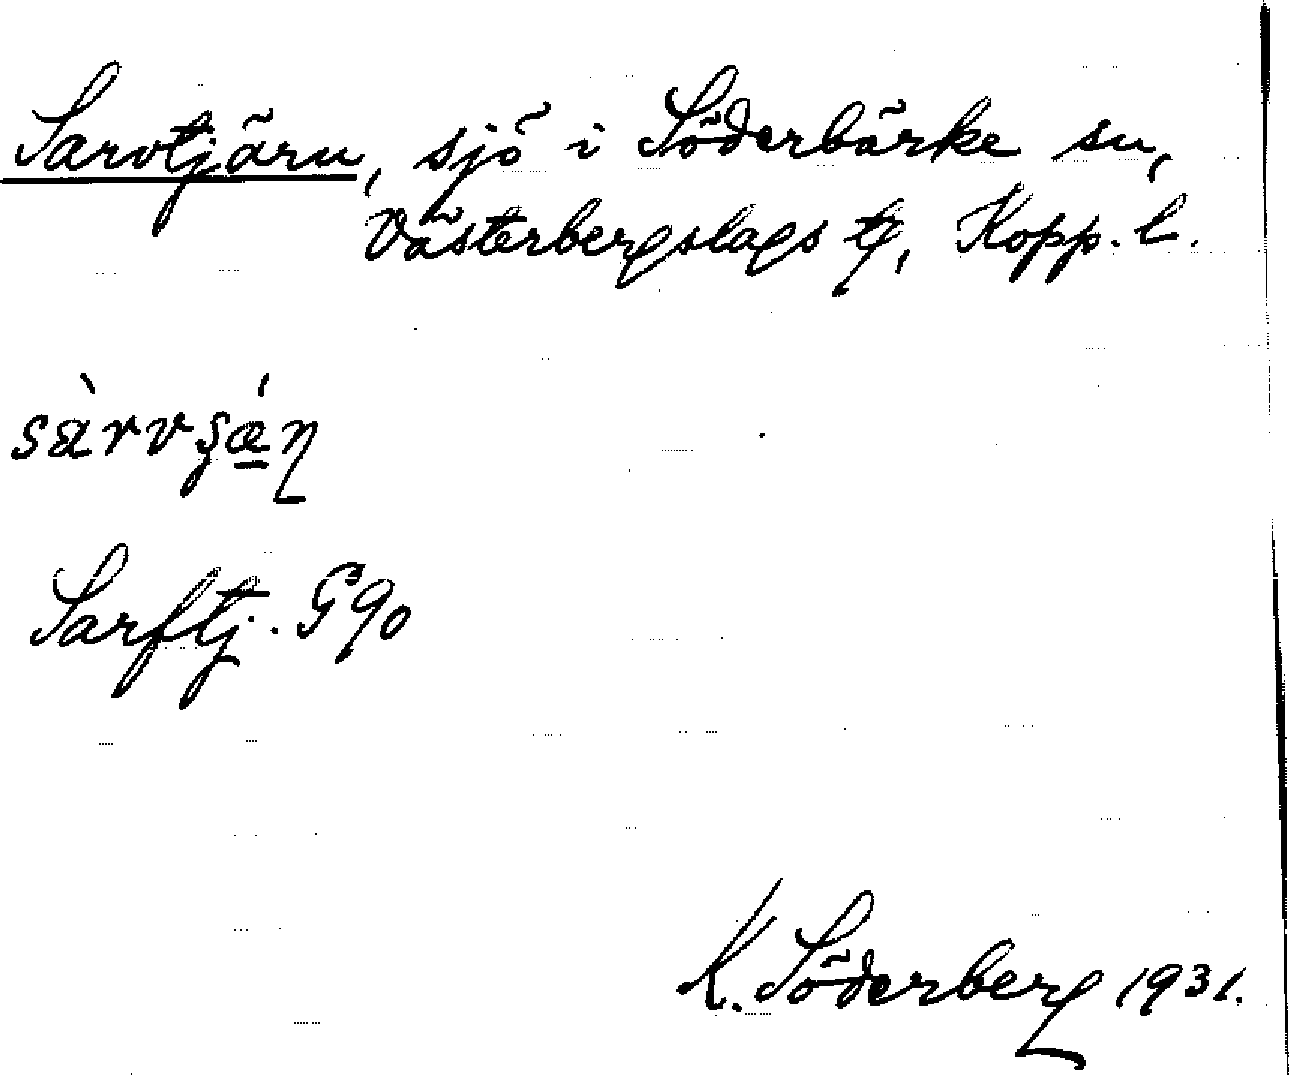 Sarvtjärn, sjö i Söderbärke sn,
Västerbergslags tg, Kopp. l.
Sarftj. G90
K. Söderberg 1931.